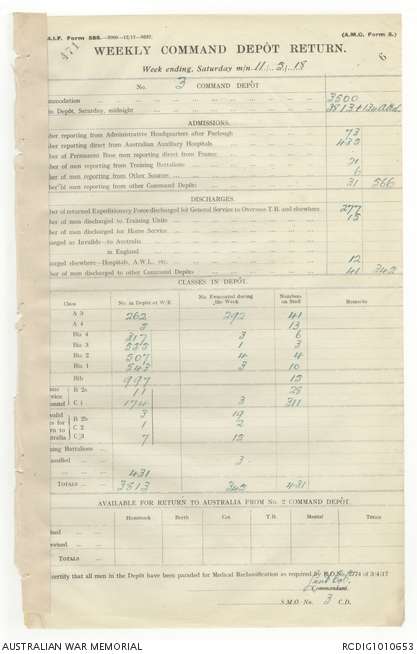 A.I.F. Form 586.
(A.M.O. Form 5.)
471
6
WEEKLY COMMAND DEPÔT RETURN.
Week ending, Saturday m/n 11.2.18
No. 3 COMMAND DEPÔT
mmodation 3500
in Depôt, Saturday, midnight 3813
ADMISSIONS.
ber reporting from Administrative Headquarters after Furlough 73
ber reporting direct from Australian Auxiliary Hospitals 435
ber of Permanent Base men reporting direct from France
ber of men reporting from Training Battalions 21
ber of men reporting from Other Sources 6
ber of men reporting from other Command Depôts 31 566
DISCHARGES.
ber of returned Expeditionary Force discharged for General Service to Overseas T.B. and elsewhere 277
ber of men discharged to Training Units 15
ber of men discharged for Home Service
harged as Invalids—to Australia
in England
harged elsewhere—Hospitals, A.W.L. etc. 12
ber of men discharged to other Command Depôts 41 345
CLASSES IN DEPÔT.
Class No. in Depot at W/E No. Evacuated during the Week Numbers on Staff Remarks
A 3 262 292 41
A 4 2 13
B1a 4 317 3 6
B1a 3 555 1 3
B1a 2 507 4 4
B1a 1 543 3 10
B1b 997 15
B 2a 11 28
C 1 174 3 311
B 2b 3 19
C 2 1 2
C 3 7 15
ning Battalions
ncelled 3
431
TOTALS 3813 345 431
AVAILABLE FOR RETURN TO AUSTRALIA FROM No. 2 COMMAND DEPÔT.
Homebook Berth Cot T.B. Mental TOTALS
TOTALS
certify that all men in the Depôt have been paraded for Medical Reclassification as required by
Lieut Col.
Commandant
S.M.O. No. 3 C.D.
AUSTRALIAN WAR MEMORIAL
RCDIG1010653